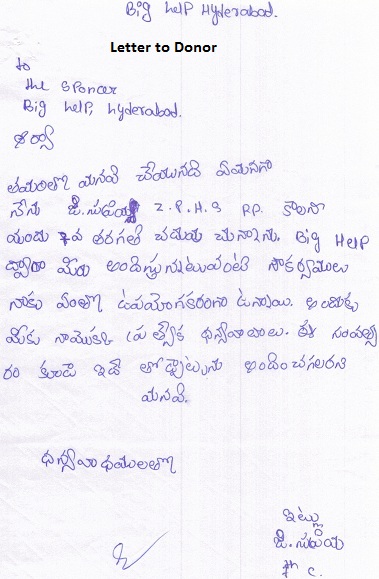 Big help Hyderabad.
Letter to Donor
to
the sponcer
Big help, hyderabad.
ఆర్యా
తమరితో మనవి చేయునది ఏమనగా
నేను జి.సుప్రియ Z.P.H.S RP. కాలని
యందు 7వ తరగతి చదువు చున్నాను. Big Help
ద్వారా మీరు అందిస్తున్నటువంటి సౌకర్యములు
నాకు ఎంతో ఉపయోగకరంగా ఉన్నాయి. అందుకు
మీకు నాయొక్క ప్రత్యేక ధన్యవాదాలు. ఈ సంవత్స
రం కూడా ఇదే తోడ్పాటును అందించగలరని
మనవి.
ధన్యవాదములతో
ఇట్లు
జి. సుప్రియ
7th c.